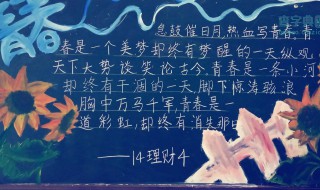 青春
急鼓催日月,热血写青春,青
春是一个美梦却终有梦醒的一天纵观
天下大势谈笑论古今.青春是一条小河
却终有干涸的一天.脚下惊涛骇浪
胸中万马千军.青春是一
道彩虹,却终有消失那
——14理财4